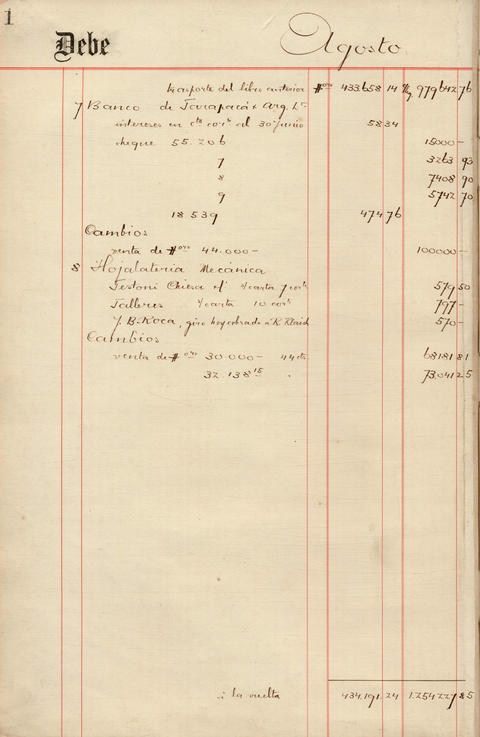 1
Debe Agosto
trasporte del libro anterior $ oro 433.658 14 979642 76
7 Banco de Tarapacá y Arg. Lº
intereses en cta corte al 30 Junio 58 34
cheque 55.206 15000 -
7 3263 93
8 7408 90
9 5742 70
18 539 474 76
Cambios
venta de $ oro 44.000 - 100000 -
8 Hojalateria Mecánica
Testoni Chiesa s/carta 7 corte 579 50
Talleres s/carta 10 corte 797 -
J. B. Roca, giro hoy cobrado a R. 570 -
Cambios
venta de $ oro 30.000 - 44 cts 68181 81
32.138 15 " 73.041 25
á la vuelta 434.191.24 1.254.227 85